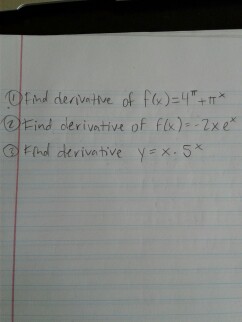 ① Find derivative of f(x)=4^π+π^x
② Find derivative of f(x)=-2xe^x
③ Find derivative y=x·5^x